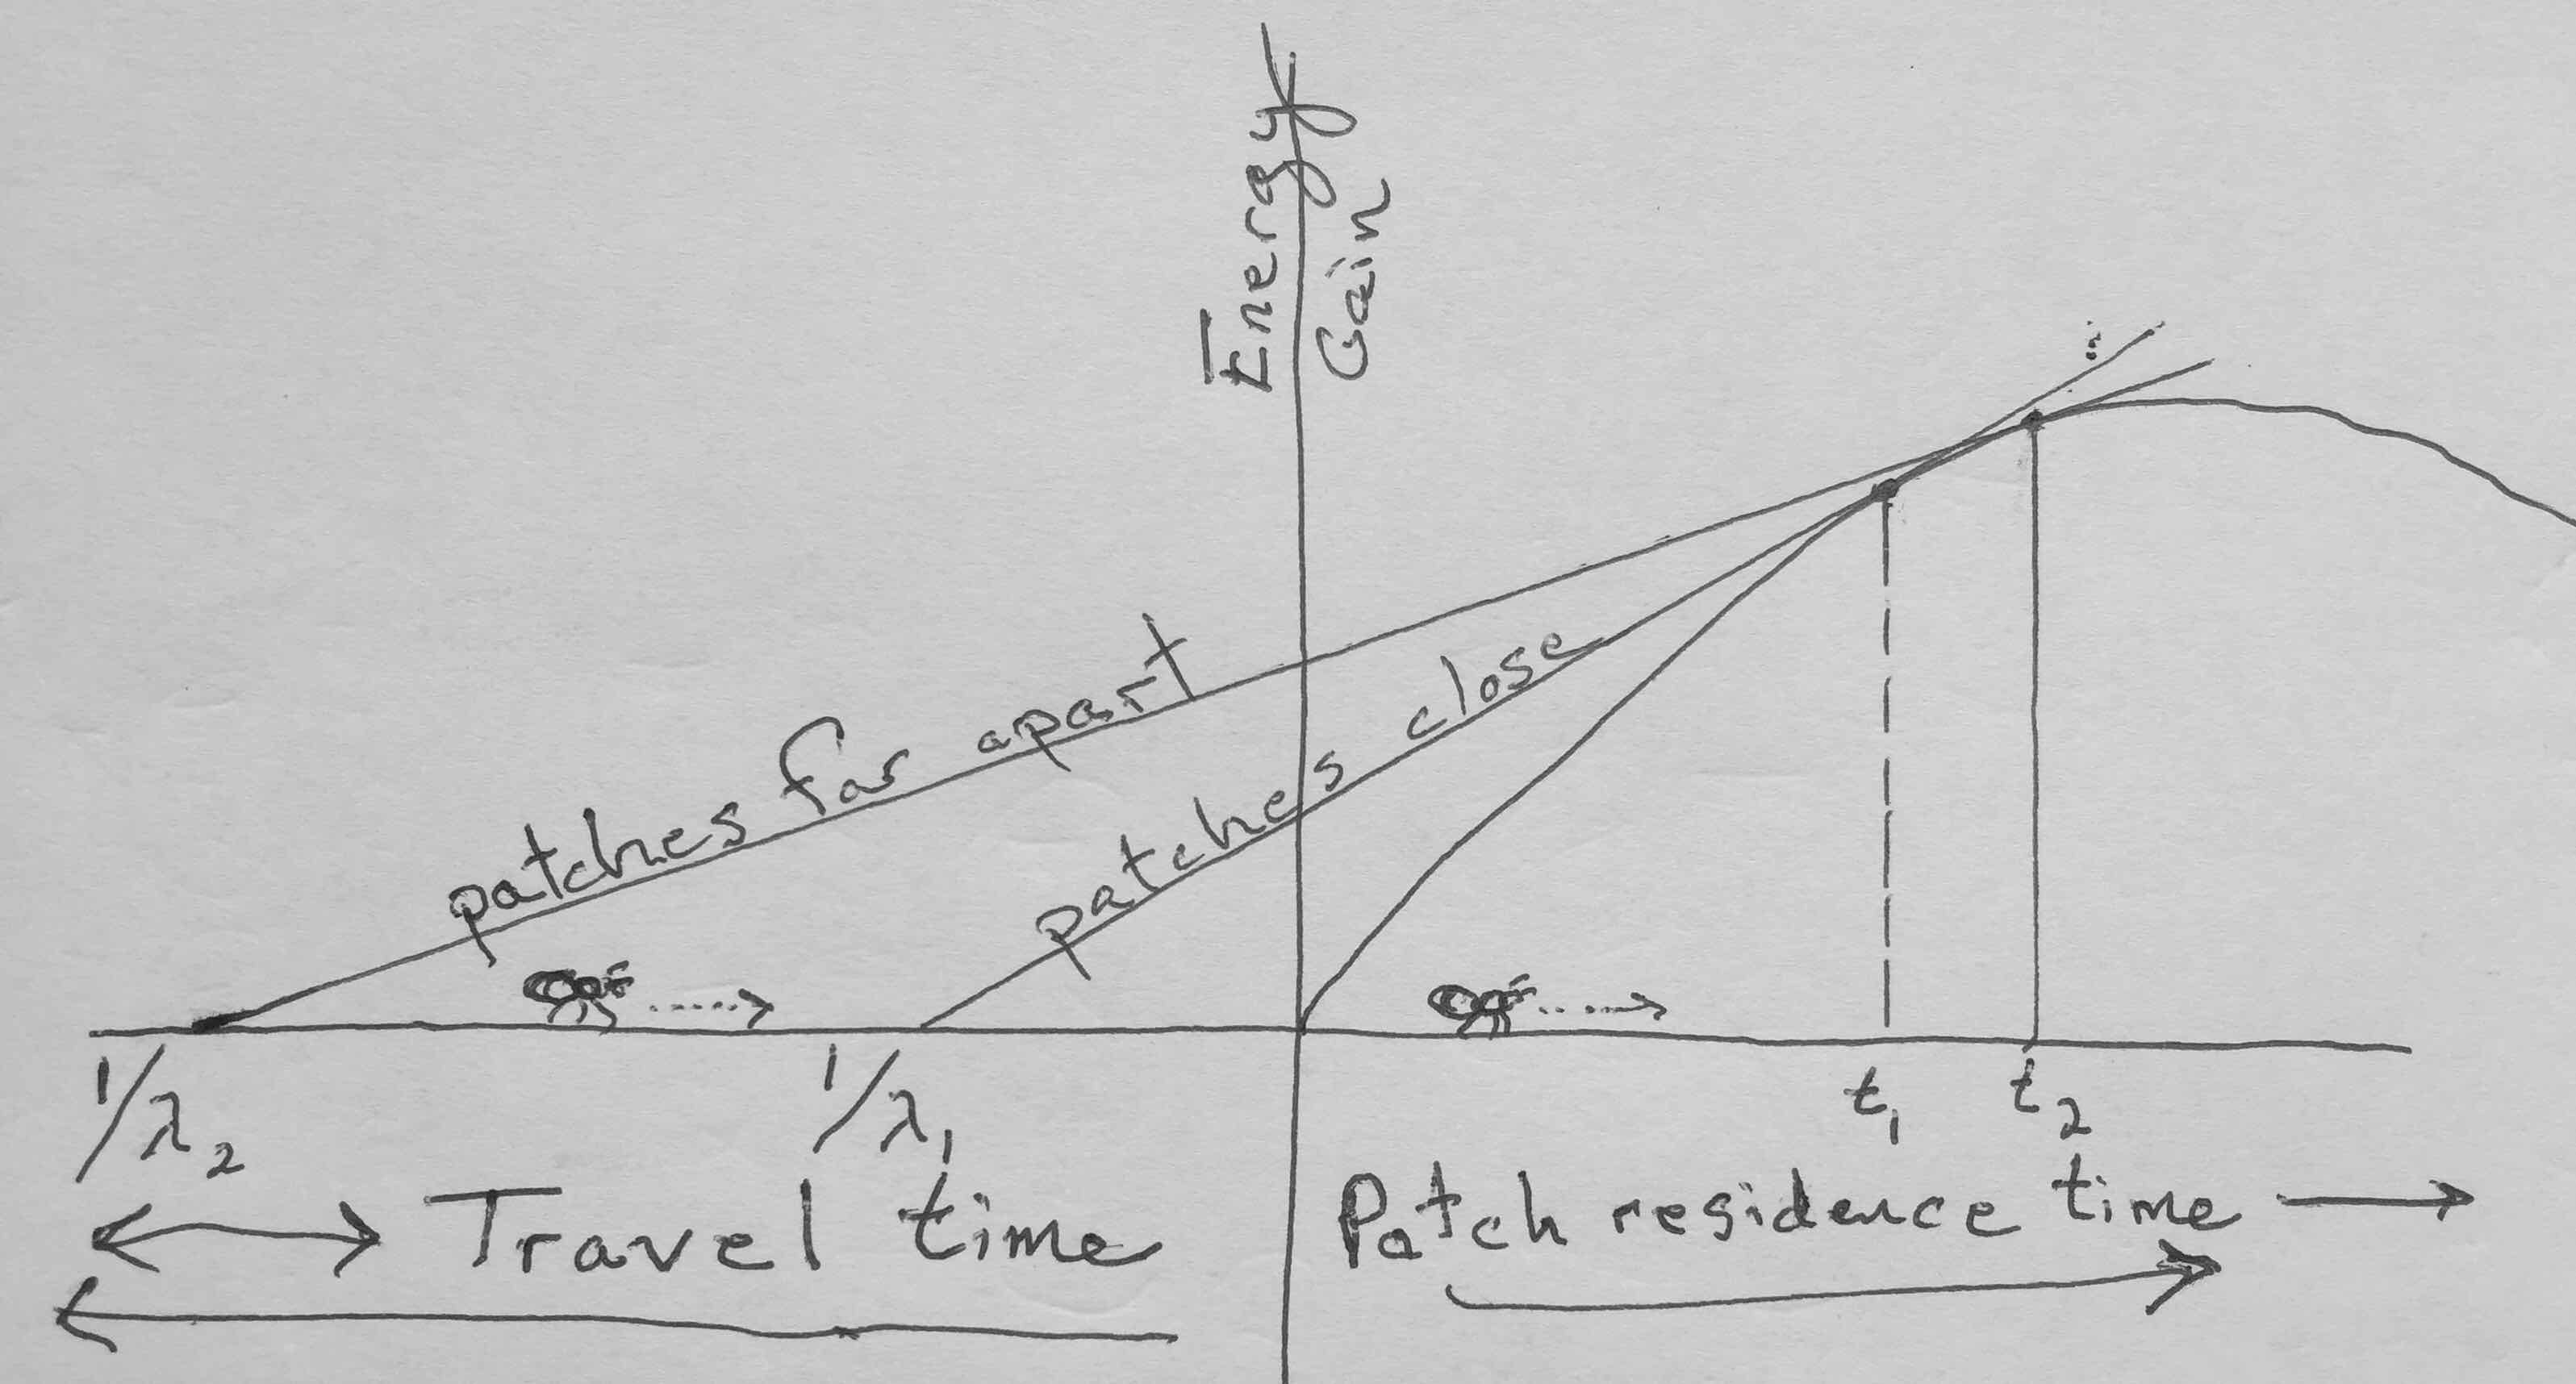 Energy
Gain
patches far apart
patches close
1/λ2
1/λ1
t1
t2
Travel time
Patch residence time